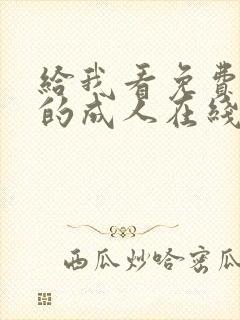 給我看免費
的成人在綫
西瓜炒哈密瓜